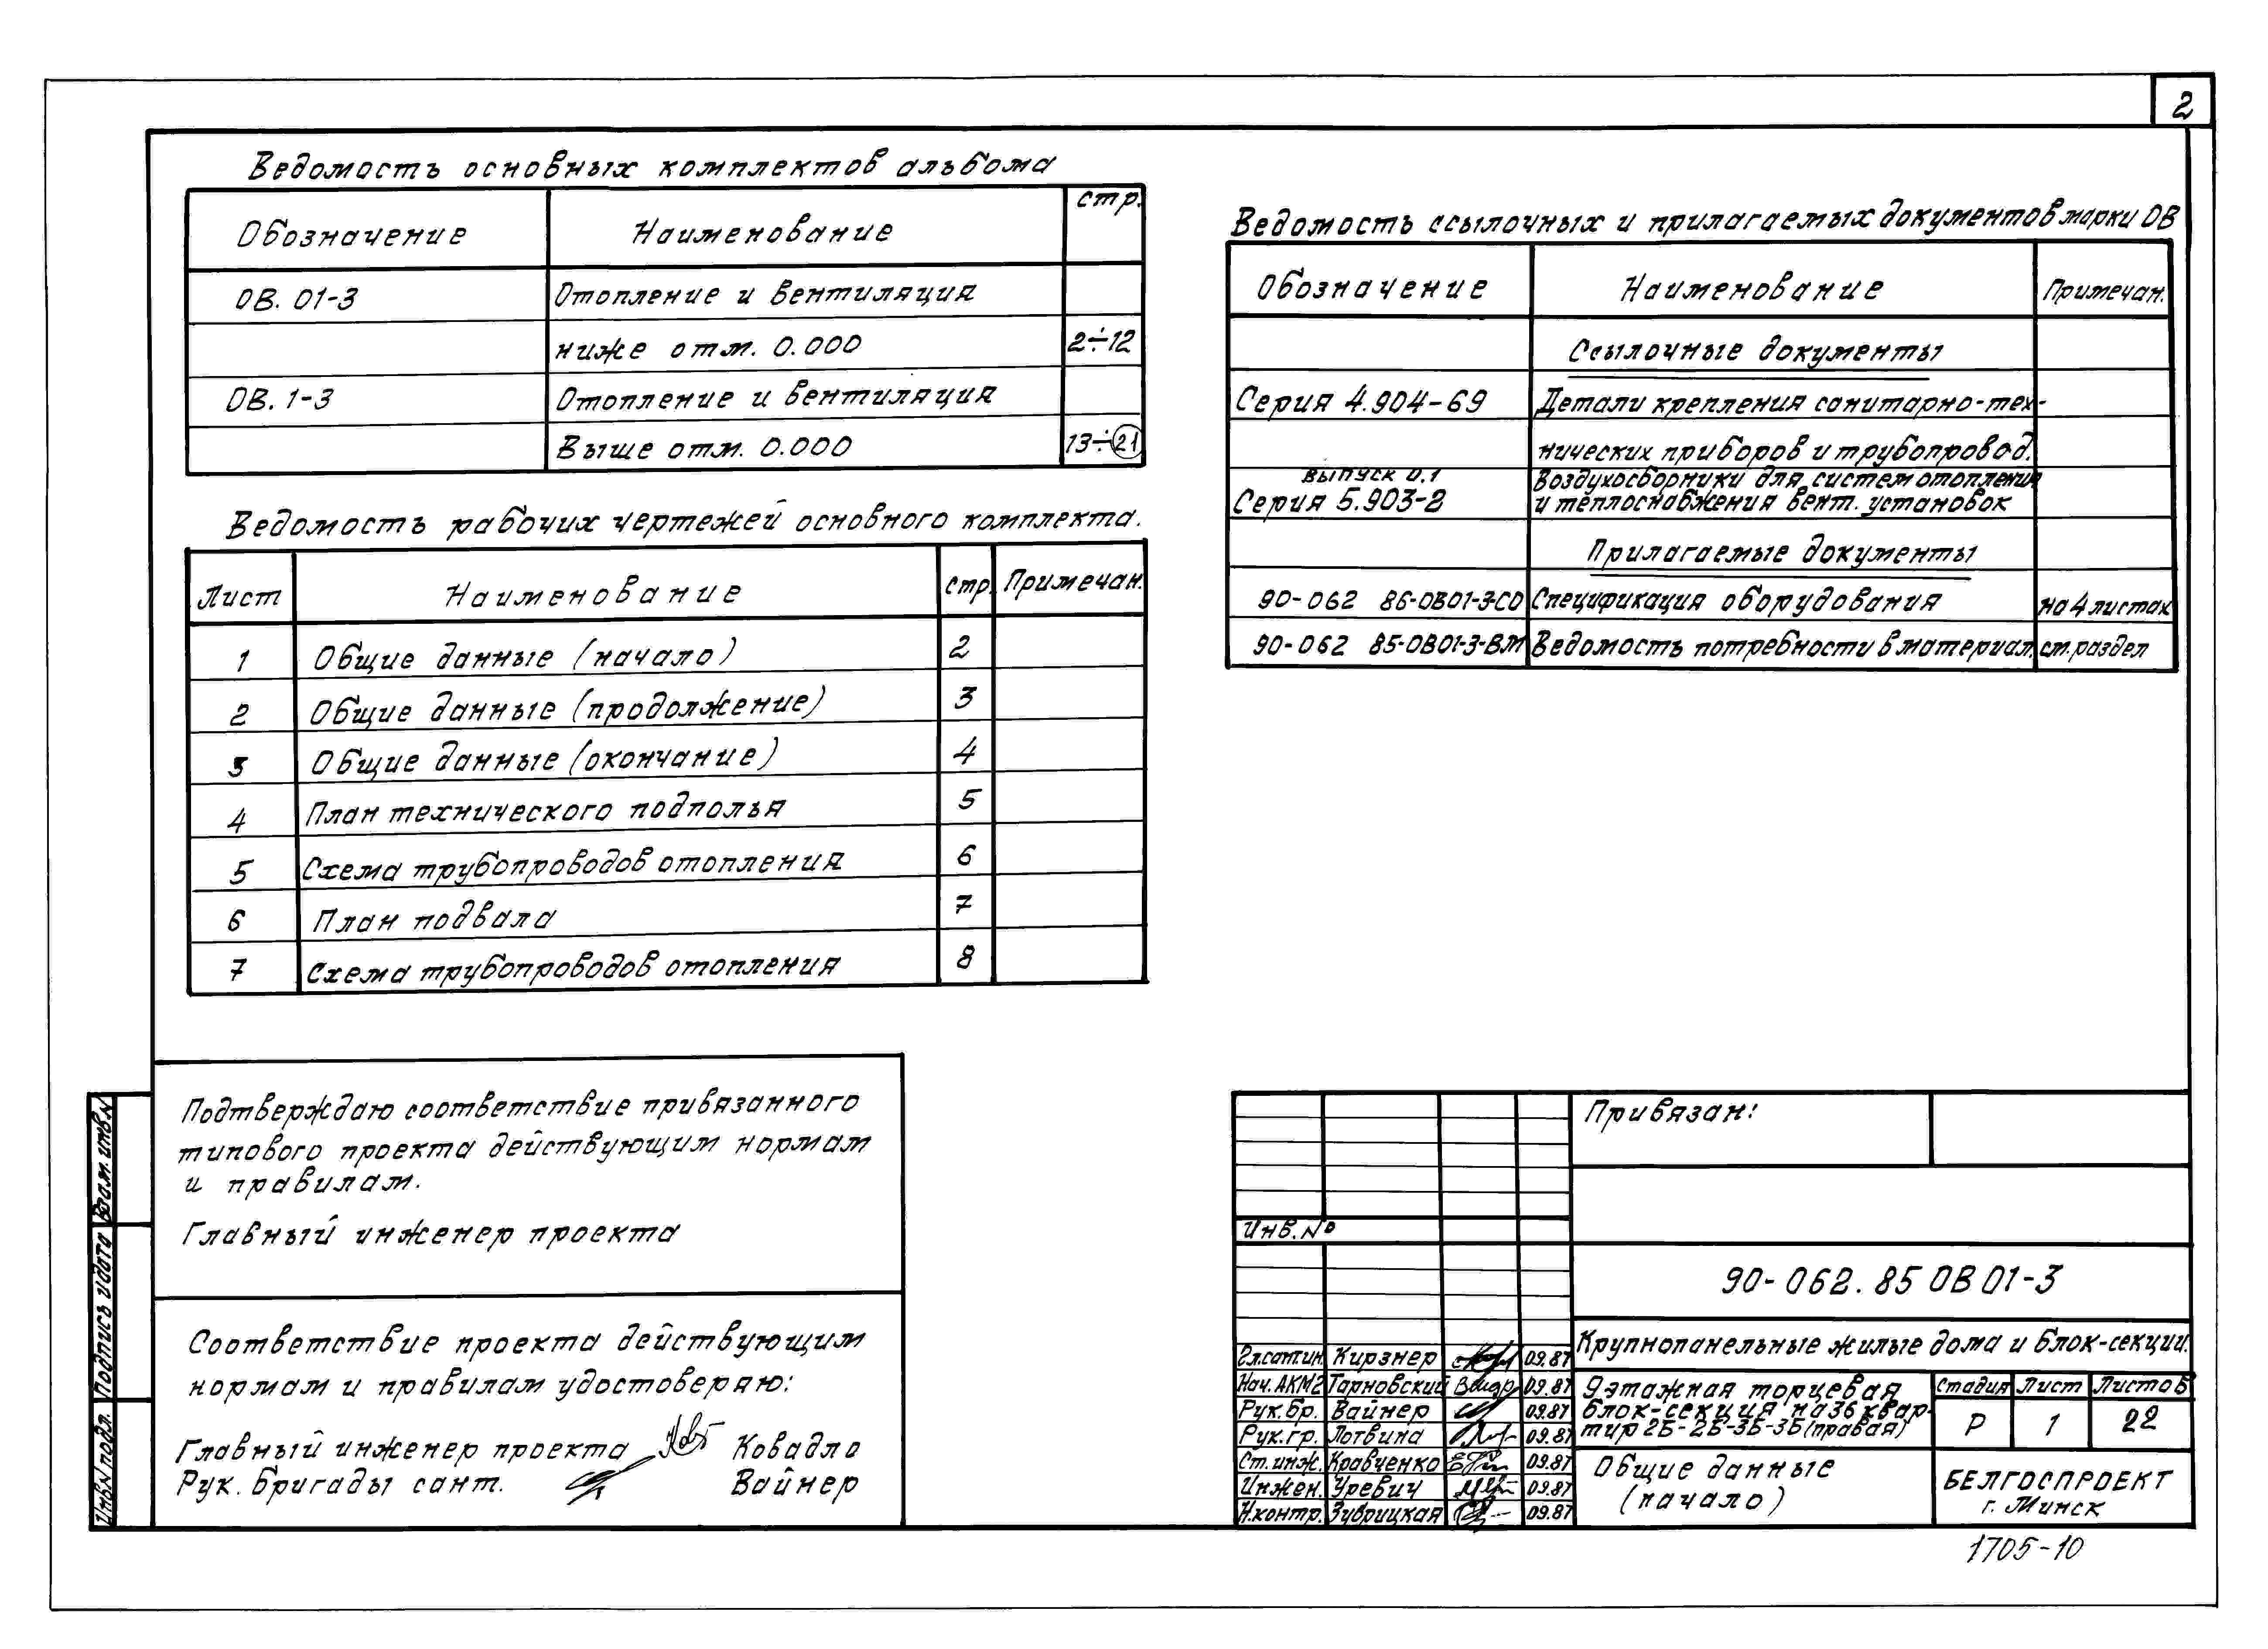 2
Ведомость основных комплектов альбома
Обозначение Наименование стр.
ОВ. 01-3 Отопление и вентиляция
ниже отм. 0.000 2÷12
ОВ. 1-3 Отопление и вентиляция
Выше отм. 0.000 13÷21
Ведомость рабочих чертежей основного комплекта.
Лист Наименование стр. Примечан.
1 Общие данные (начало) 2
2 Общие данные (продолжение) 3
3 Общие данные (окончание) 4
4 План технического подполья 5
5 Схема трубопроводов отопления 6
6 План подвала 7
7 Схема трубопроводов отопления 8
Ведомость ссылочных и прилагаемых документов марки ОВ
Обозначение Наименование Примечан.
Ссылочные документы
Серия 4.904-69 Детали крепления санитарно-тех-
нических приборов и трубопровод.
выпуск 0.1 Воздухосборники для систем отопления
Серия 5.903-2 и теплоснабжения вент. установок
Прилагаемые документы
90-062 86-ОВ01-3-СО Спецификация оборудования на 4 листах
90-062 85-ОВ01-3-ВМ Ведомость потребности в материал. см. раздел
Подтверждаю соответствие привязанного
типового проекта действующим нормам
и правилам.
Главный инженер проекта
Соответствие проекта действующим
нормам и правилам удостоверяю:
Главный инженер проекта Ковадло
Рук. Бригады сант. Вайнер
Взам. инв.N
Подпись и дата
Инв.N подл.
Привязан:
Инв.№
90-062.85 ОВ 01-3
Крупнопанельные жилые дома и блок-секции.
Гл.сантин. Кирзнер 09.87
Нач. АКМ2 Тарновский 09.87
Рук. бр. Вайнер 09.87
Рук. гр. Лотвина 09.87
Ст. инж. Кравченко 09.87
Инжен. Уревич 09.87
Н.контр. Зубрицкая 09.87
9этажная торцевая
блок-секция на 36 квар-
тир 2Б-2Б-3Б-3Б (правая)
Стадия Лист Листов
Р 1 22
Общие данные
(начало)
БЕЛГОСПРОЕКТ
г. Минск
1705-10